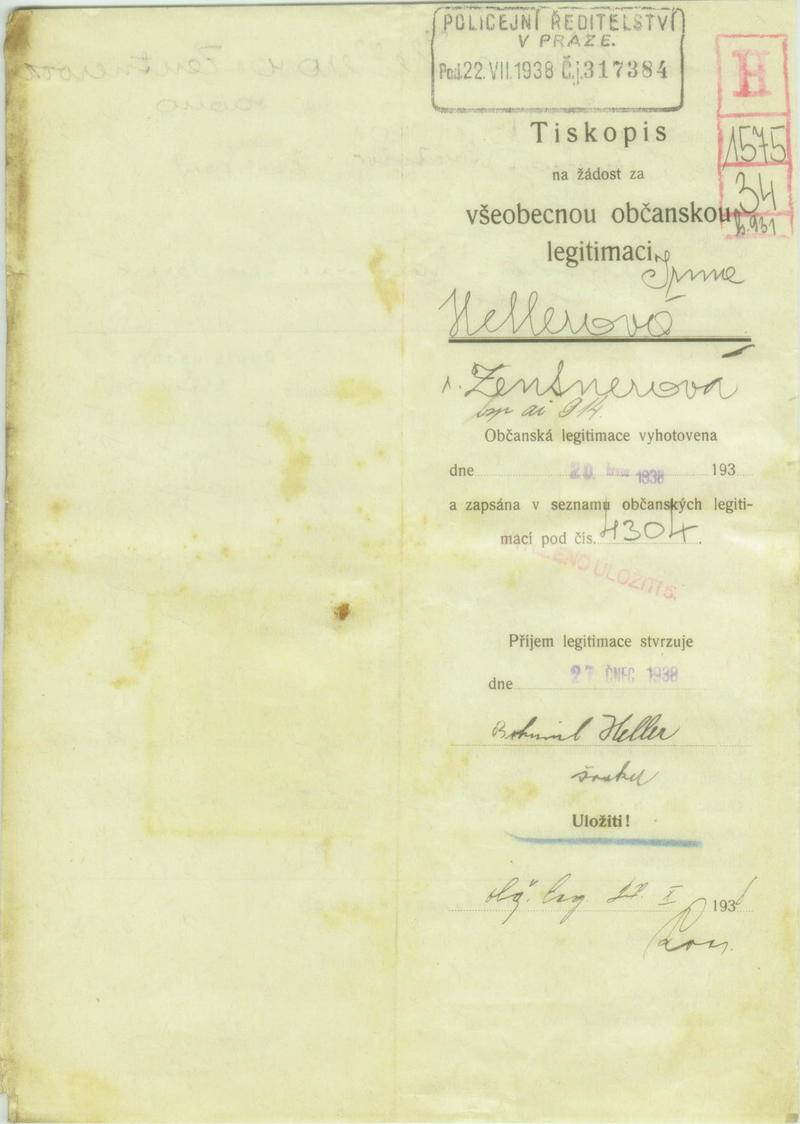 POLICEJNÍ ŘEDITELSTVÍ
V PRAZE.
Pod. 22.VII.1938 Č.j. 317384
H
1575
34
Tiskopis
na žádost za
všeobecnou občanskou
legitimaci
Hellerová
Zentnerová
Občanská legitimace vyhotovena
dne 20 1938 193
a zapsána v seznamu občanských legiti-
mací pod čís. 4304.
ULOŽITI
Příjem legitimace stvrzuje
dne 27 ČNEC 1938
Bohumil Heller
Uložiti!
193